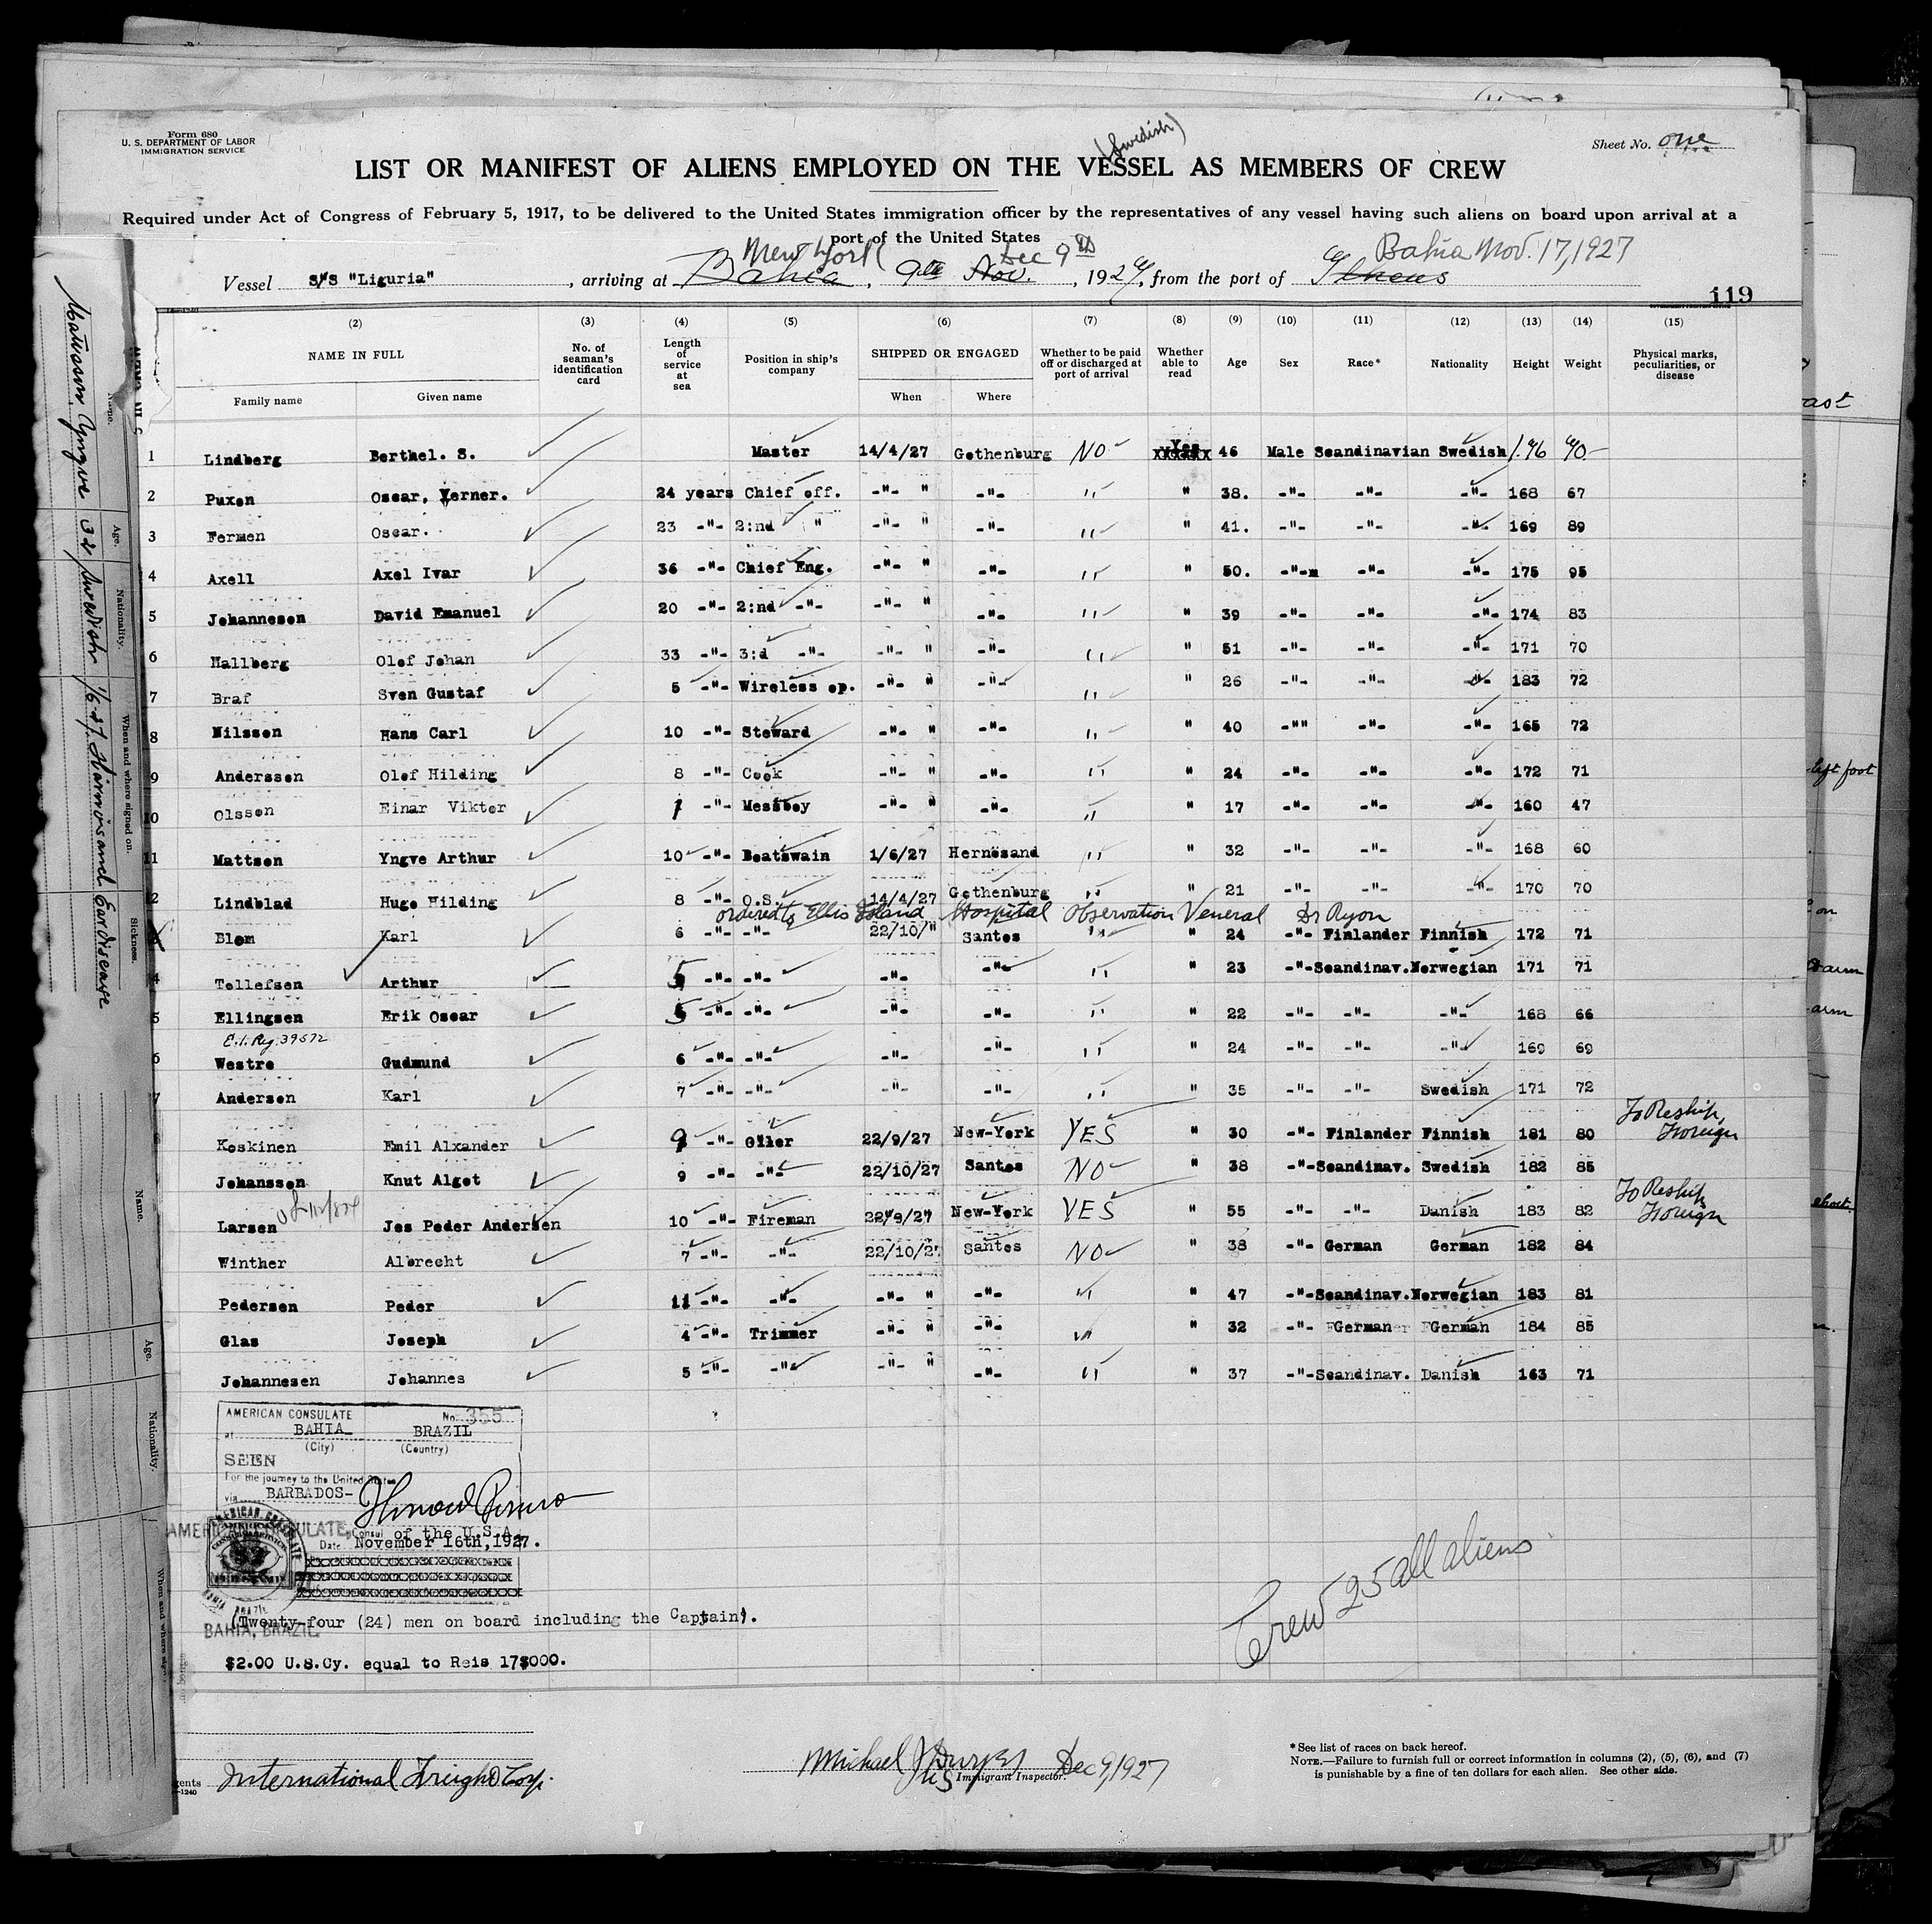 Form 680
U. S. DEPARTMENT OF LABOR
IMMIGRATION SERVICE
Sheet No. one
(Swedish)
LIST OR MANIFEST OF ALIENS EMPLOYED ON THE VESSEL AS MEMBERS OF CREW
Required under Act of Congress of February 5, 1917, to be delivered to the United States immigration officer by the representatives of any vessel having such aliens on board upon arrival at a
port of the United States
New York Dec 9th Bahia Nov. 17, 1927
Vessel S/S "Liguria", arriving at Bahia, 9th Nov., 1927, from the port of
119
(2) (3) (4) (5) (6) (7) (8) (9) (10) (11) (12) (13) (14) (15)
NAME IN FULL No. of seaman's identification card Length of service at sea Position in ship's company SHIPPED OR ENGAGED Whether to be paid off or discharged at port of arrival Whether able to read Age Sex Race* Nationality Height Weight Physical marks, peculiarities, or disease
Family name Given name When Where
1 Lindberg Berthel. S. Master 14/4/27 Gothenburg NO Yes 46 Male Scandinavian Swedish 1.76 70-
2 Puxon Oscar, Verner. 24 years Chief off. -"- " -"- " " 38. -"- -"- -"- 168 67
3 Fermen Oscar. 23 -"- 2:nd " -"- " -"- " " 41. -"- -"- -"- 169 89
4 Axell Axel Ivar 36 -"- Chief Eng. -"- " -"- " " 50. -"-m -"- -"- 175 95
5 Johannesen David Emanuel 20 -"- 2:nd -"- -"- " -"- " " 39 -"- -"- -"- 174 83
6 Hallberg Olof Johan 33 -"- 3:d -"- -"- " -"- " " 51 -"- -"- -"- 171 70
7 Braf Sven Gustaf 5 -"- Wireless op. -"- " -"- " " 26 -"- -"- -"- 183 72
8 Nilsson Hans Carl 10 -"- Steward -"- " -"- " " 40 -"" -"- -"- 165 72
9 Andersson Olof Hilding 8 -"- Cook -"- " -"- " " 24 -"- -"- -"- 172 71
10 Olsson Einar Viktor 1 -"- Messboy -"- " -"- " " 17 -"- -"- -"- 160 47
11 Mattson Yngve Arthur 10 -"- Boatswain 1/6/27 Hernösand " " 32 -"- -"- -"- 168 60
2 Lindblad Hugo Hilding 8 -"- O.S. 14/4/27 Gothenburg " " 21 -"- -"- -"- 170 70
ordered to Ellis Island Hospital Observation Veneral Dr Ryon
Blom Karl 6 -"- -"- 22/10/" Santos " " 24 -"- Finlander Finnish 172 71
4 Tollefsen Arthur 5 -"- -"- -"- -"- " " 23 -"- Scandinav. Norwegian 171 71
5 Ellingsen Erik Oscar 5 -"- -"- -"- -"- " " 22 -"- -"- -"- 168 66
E.I. Reg. 39572
6 Westre Gudmund 6 -"- -"- -"- -"- " " 24 -"- -"- -"- 169 69
7 Anderson Karl 7 -"- -"- -"- -"- " " 35 -"- -"- Swedish 171 72
8 Koskinen Emil Alxander 9 -"- Oiler 22/9/27 New-York YES " 30 -"- Finlander Finnish 181 80 To Reship, Foreign
Johansson Knut Algot 9 -"- -"- 22/10/27 Santos NO " 38 -"- Scandinav. Swedish 182 85
Larsen Jes Peder Andersen 10 -"- Fireman 22/9/27 New-York YES " 55 -"- -"- Danish 183 82 To Reship Foreign
Winther Albrecht 7 -"- -"- 22/10/27 Santos NO " 38 -"- German German 182 84
Pedersen Peder 11 -"- -"- -"- " -"- " " 47 -"- Scandinav. Norwegian 183 81
Glas Joseph 4 -"- Trimmer -"- " -"- " " 32 -"- German German 184 85
Johannesen Johannes 5 -"- -"- -"- " -"- " " 37 -"- Scandinav. Danish 163 71
AMERICAN CONSULATE No. 355
at BAHIA BRAZIL
(City) (Country)
SEEN
For the journey to the United States
via BARBADOS-
AMERICAN CONSULATE, Consul of the U.S.A.
Date November 16th, 1927.
(Twenty-four (24) men on board including the Captain).
BAHIA, BRAZIL
$2.00 U.S.Cy. equal to Reis 17$000.
Crew 25 all aliens
International Freight Corp.
Michael J Dwyer Dec 9, 1927
US Immigrant Inspector.
*See list of races on back hereof.
NOTE.—Failure to furnish full or correct information in columns (2), (5), (6), and (7)
is punishable by a fine of ten dollars for each alien. See other side.
Name. Age. Nationality. When and where signed on. Sickness.
Matusson Yngve 32 Swedish 1/6-27 Härnösand Ear disease
Name. Age. Nationality. When and where sign
left foot
arm
arm
short